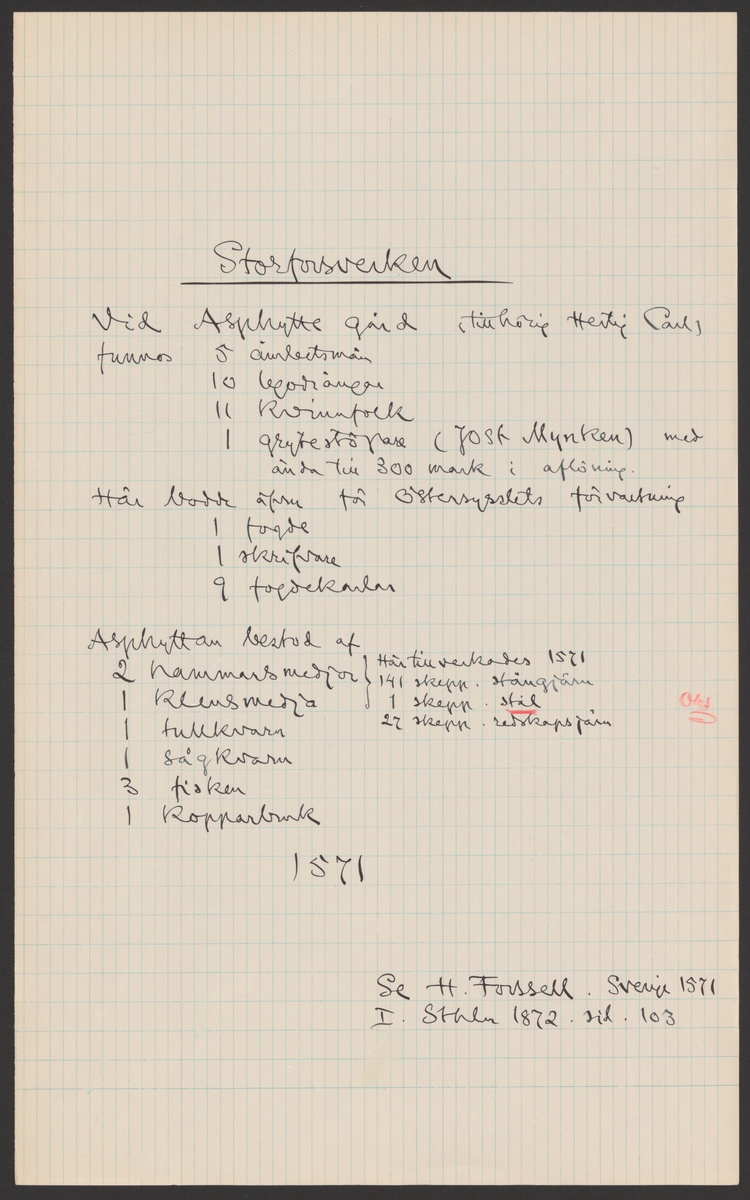 Storforsverken
Vid Asphytte gård (tillhörig Hertig Carl)
funnos 5 ämbetsmän
10 legodrängar
11 kvinnfolk
1 grytestöpare (Jost Mynken) med
ända till 300 mark i aflöning.
Här bodde äfven för Östersysslets förvaltning
1 fogde
1 skrifvare
9 fogdekarlar
Asphyttan bestod af
2 hammarsmedjor
1 klensmedja
Här tillverkades 1571
141 skepp. stångjärn
1 skepp. stål
27 skepp. redskapsjärn
Obs
1 tullkvarn
1 sågkvarn
3 fisken
1 kopparbruk
1571
Se H. Forssell. Sverige 1571
I. Sthlm 1872. sid. 103